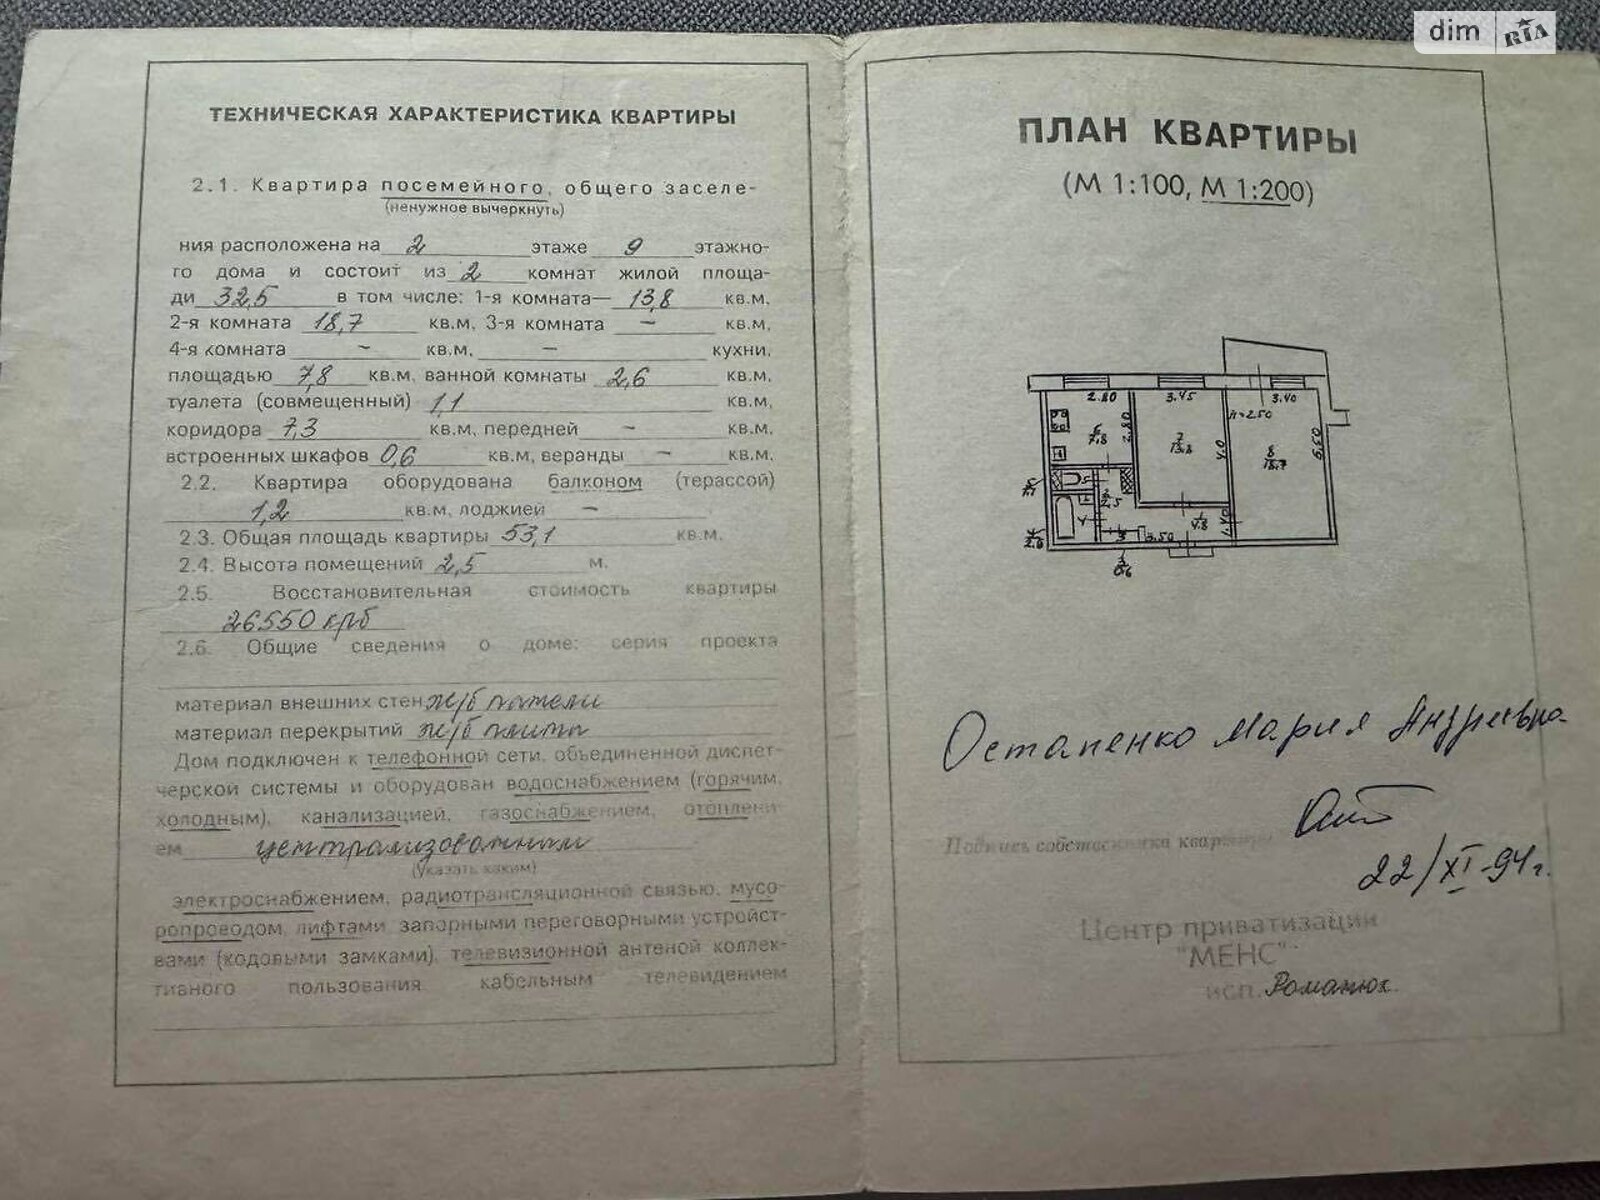 dim RIA
ТЕХНИЧЕСКАЯ ХАРАКТЕРИСТИКА КВАРТИРЫ
2.1. Квартира посемейного, общего заселе-
(ненужное вычеркнуть)
ния расположена на 2 этаже 9 этажно-
го дома и состоит из 2 комнат жилой площа-
ди 32,5 в том числе: 1-я комната— 13,8 кв.м,
2-я комната 18,7 кв.м, 3-я комната – кв.м,
4-я комната – кв.м, – кухни,
площадью 7,8 кв.м, ванной комнаты 2,6 кв.м,
туалета (совмещенный) 1,1 кв.м,
коридора 7,3 кв.м, передней – кв.м,
встроенных шкафов 0,6 кв.м, веранды – кв.м.
2.2. Квартира оборудована балконом (терассой)
1,2 кв.м, лоджией –
2.3. Общая площадь квартиры 53,1 кв.м.
2.4. Высота помещений 2,5 м.
2.5. Восстановительная стоимость квартиры
26550 крб
2.6. Общие сведения о доме: серия проекта
материал внешних стен ж/б панели
материал перекрытий ж/б плиты
Дом подключен к телефонной сети, объединенной диспет-
черской системы и оборудован водоснабжением (горячим,
холодным), канализацией, газоснабжением, отоплени-
ем централизованным
(указать каким)
электроснабжением, радиотрансляционной связью, мусо-
ропроводом, лифтами, запорными переговорными устройст-
вами (кодовыми замками), телевизионной антеной коллек-
тивного пользования, кабельным телевидением
ПЛАН КВАРТИРЫ
(М 1:100, М 1:200)
2.80 3.45 3.40
h=2.50
6 7,8 2.80 7 13.8 4.0 8 18.7 5.50
5 1,1 2 2,5
4 2.6 3 3.50 1 4.8 1.40
3 0.6
Остапенко Мария Андреевна
Подпись собственника квартиры
22/XI-94г.
Центр приватизации
"МЕНС"
исп. Романюк